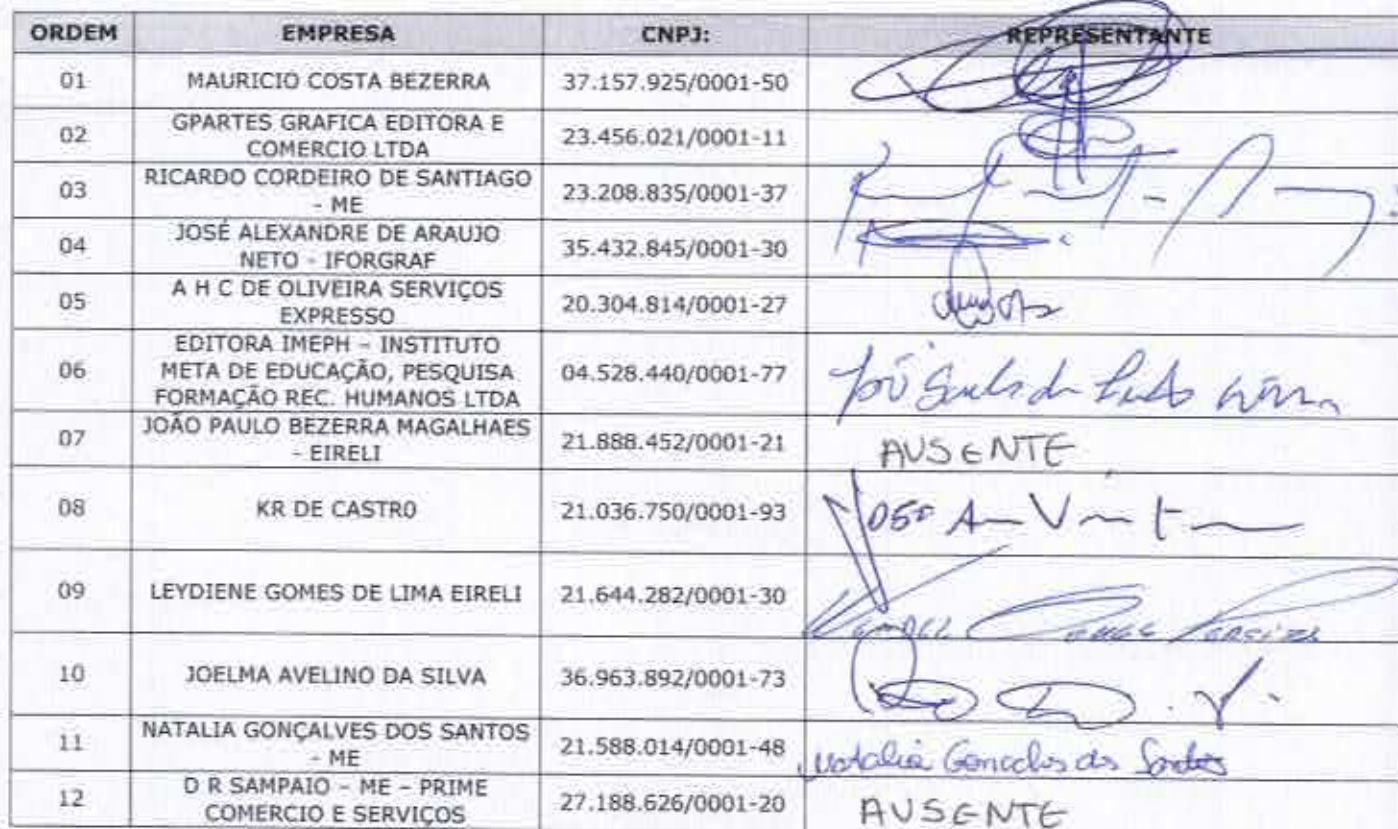 ORDEM EMPRESA CNPJ: REPRESENTANTE
01 MAURICIO COSTA BEZERRA 37.157.925/0001-50
02 GPARTES GRAFICA EDITORA E
COMERCIO LTDA 23.456.021/0001-11
03 RICARDO CORDEIRO DE SANTIAGO
- ME 23.208.835/0001-37
04 JOSÉ ALEXANDRE DE ARAUJO
NETO - IFORGRAF 35.432.845/0001-30
05 A H C DE OLIVEIRA SERVIÇOS
EXPRESSO 20.304.814/0001-27
06 EDITORA IMEPH – INSTITUTO
META DE EDUCAÇÃO, PESQUISA
FORMAÇÃO REC. HUMANOS LTDA 04.528.440/0001-77
07 JOÃO PAULO BEZERRA MAGALHAES
- EIRELI 21.888.452/0001-21 AUSENTE
08 KR DE CASTR0 21.036.750/0001-93
09 LEYDIENE GOMES DE LIMA EIRELI 21.644.282/0001-30
10 JOELMA AVELINO DA SILVA 36.963.892/0001-73
11 NATALIA GONÇALVES DOS SANTOS
- ME 21.588.014/0001-48 Natalia Goncalves dos Santos
12 D R SAMPAIO – ME – PRIME
COMERCIO E SERVIÇOS 27.188.626/0001-20 AUSENTE